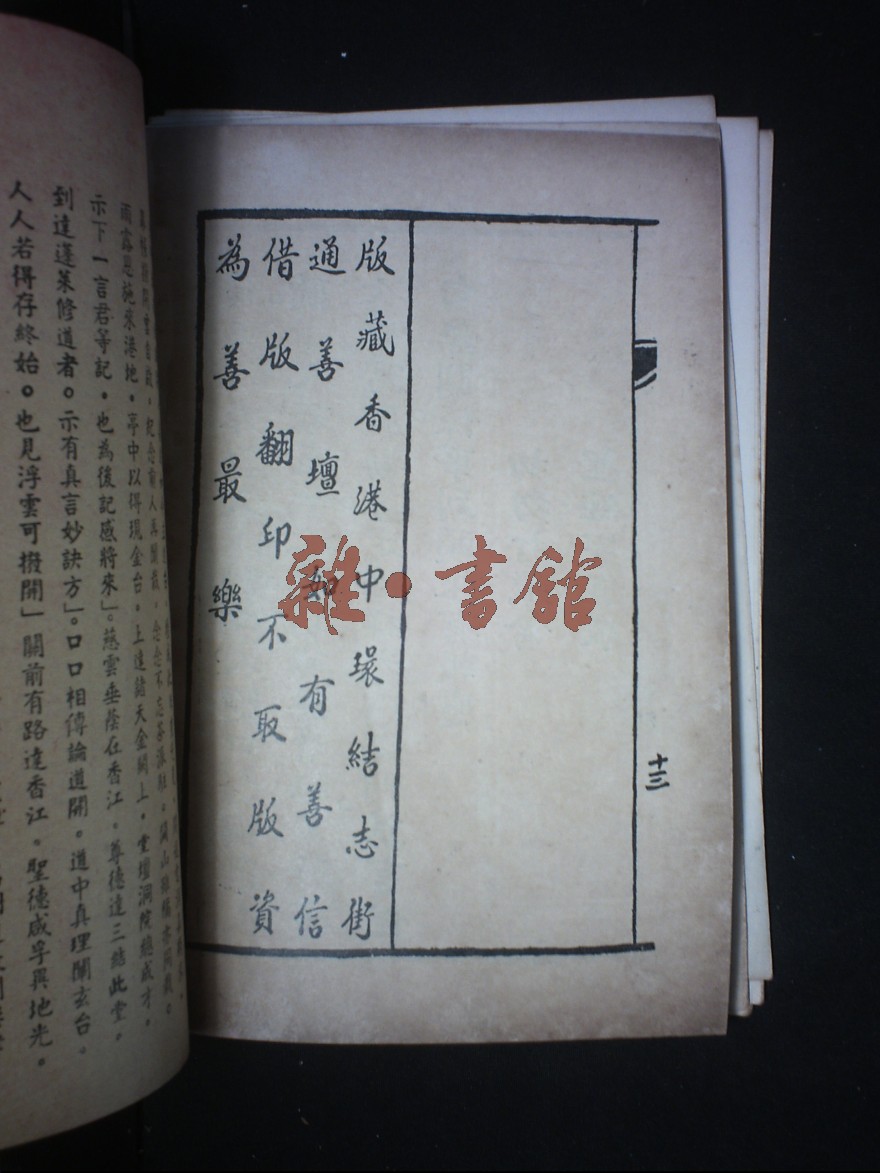 十三
版藏香港中環結志街
通善壇如有善信
借版翻印不取版資
為善最樂
雜·書館
雨露恩施來港地。亭中以得現金台。上達諸天金闕上。堂壇洞院總成才。
示下一言君等記。也為後記感將來」。慈雲垂蔭在香江。尊德達三結此堂。
到達蓬萊修道者。示有真言妙訣方」。口口相傳論道開。道中真理闡玄台。
人人若得存終始。也見浮雲可撥開」關前有路達香江。聖德咸孚異地光。